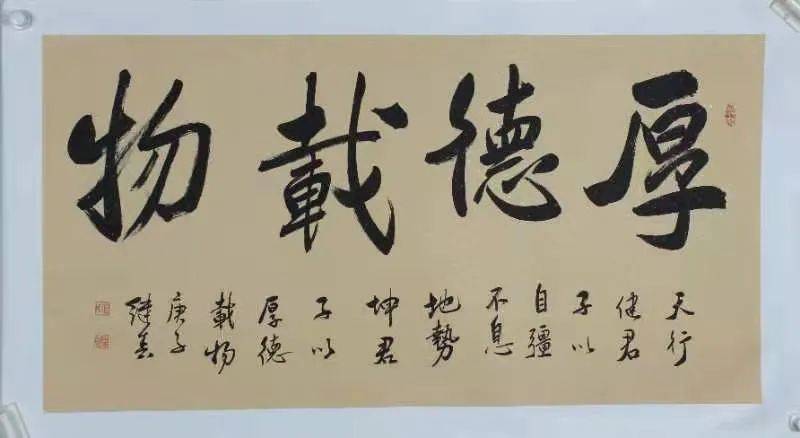 厚德載物
天行
健君
子以
自疆
不息
地勢
坤君
子以
厚德
載物
庚子